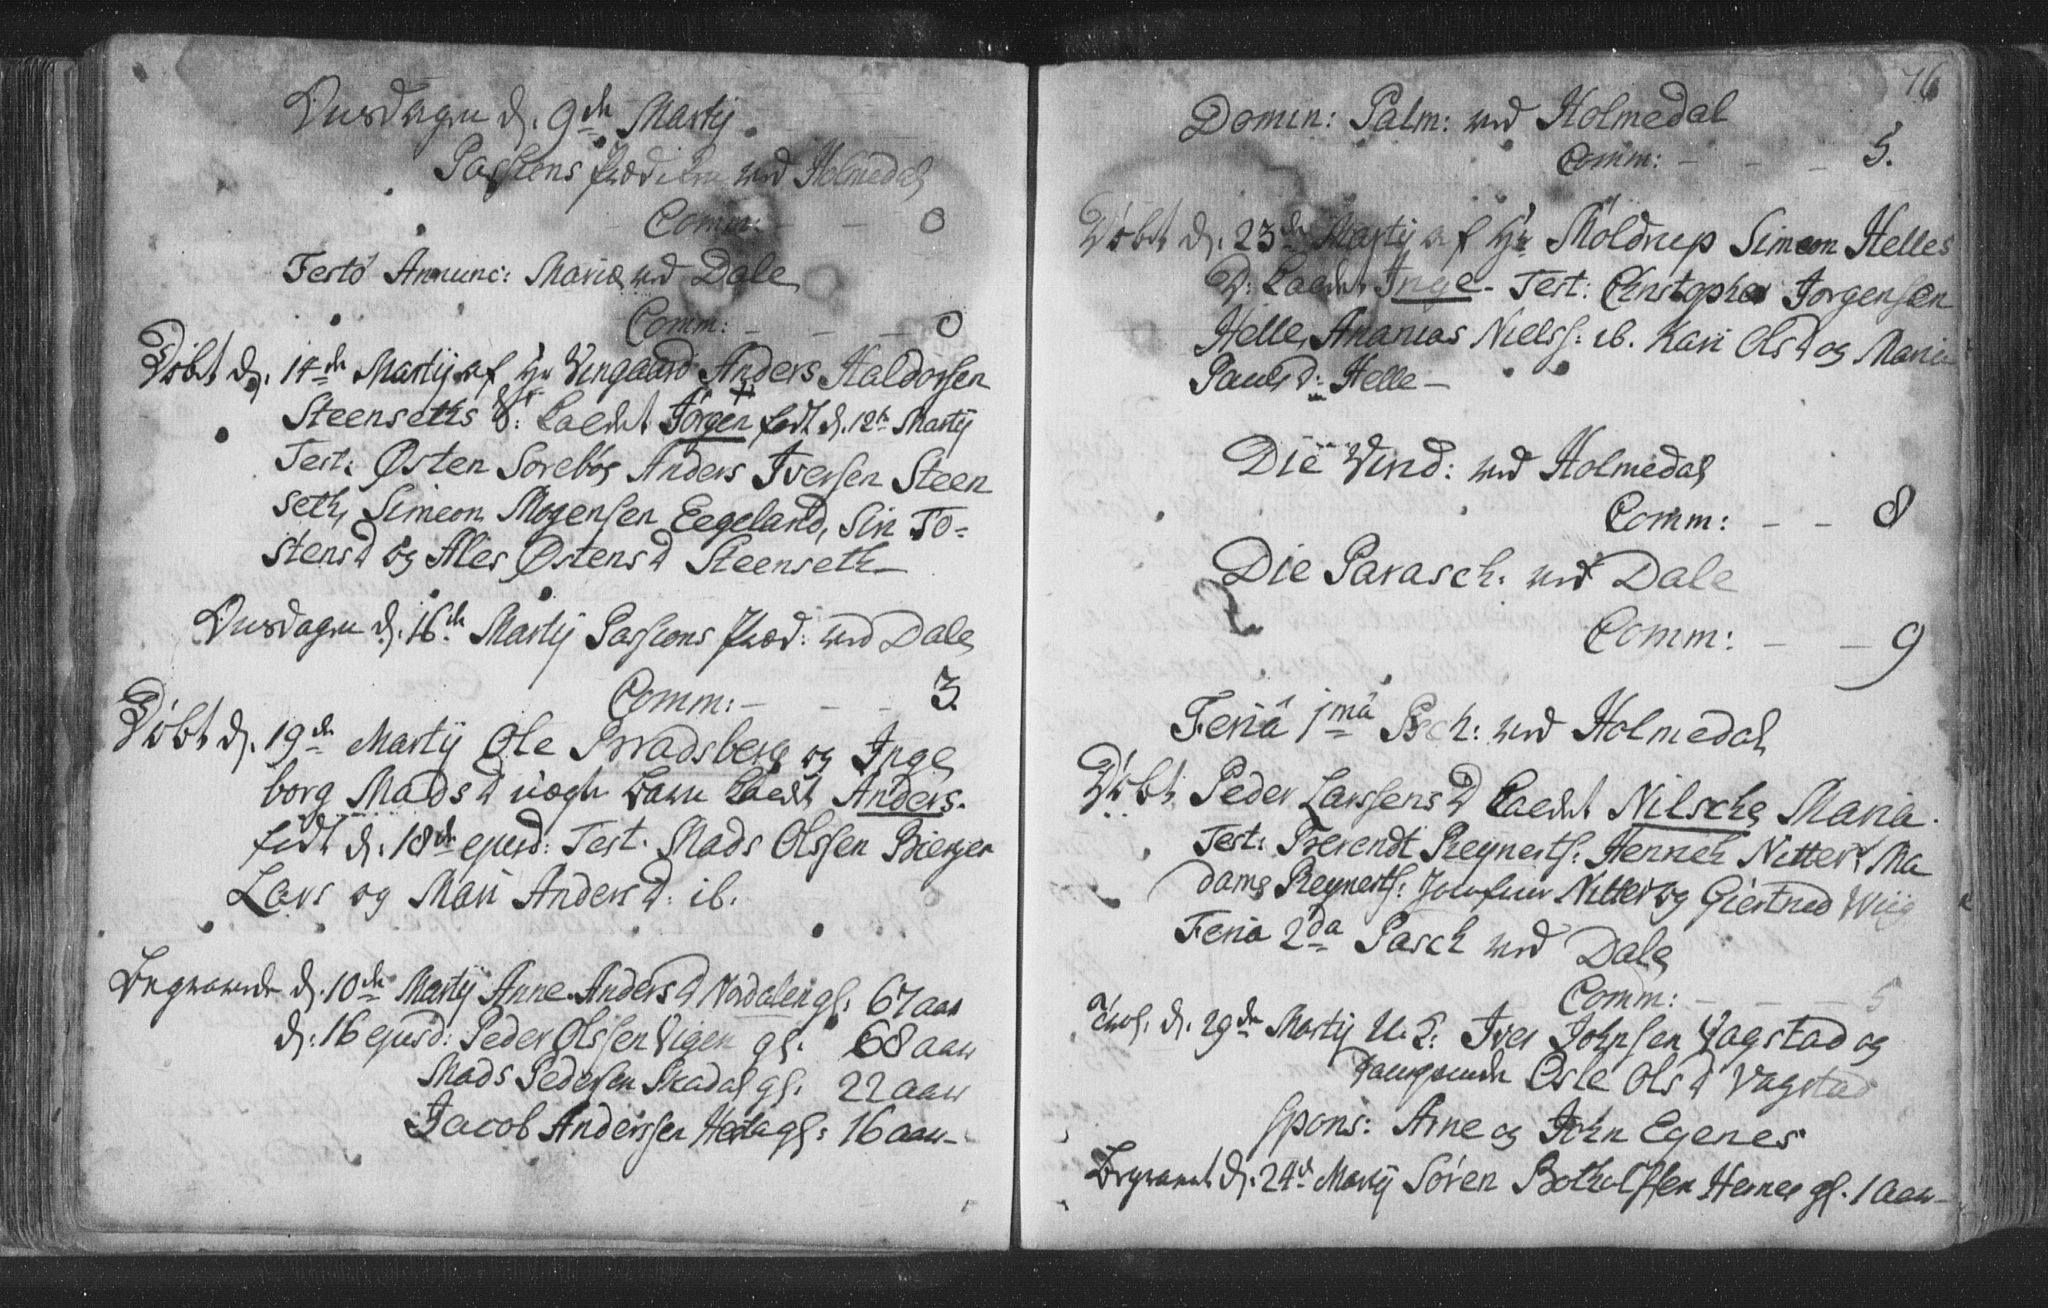 Onsdagen d. 9de Martij
Passions Prædiken ved Holmedal
Comm: - - - 0
Festo Annunc: Mariæ ved Dale
Comm: - - - 0
Døbt d. 14de Martij af Hr Vingaard Anders Haldorsen
Steenseths S: kaldet Jørgen født d. 12te Martij
Test: Østen Sørebøe Anders Iversen Steen
seth, Simeon Mogensen Eegeland, Siri To=
stensd og Ales Østensd Steenseth
Onsdagen d. 16de Martij Passions Præd: ved Dale
Comm: - - - 3
Døbt d. 19de Martij Ole Bradsberg og Inge
borg Madsd uægte Barn kaldt Anders.
født d. 18de ejusd: Test. Mads Olssen
Lars og Mari Andersd: ib.
Begravede d. 10de Martij Anne Andersd Nordalen gl. 67 aar
d. 16 ejusd: Peder Olssen Vigen gl. 68 aar
Mads Pedersen Skadal gl: 22 aar
Jacob Anderssen Hestad gl: 16 aar
76
Domin: Palm: ved Holmedal
Comm: - - - 5.
Døbt d. 23de Martij af Hr Møldrup Simeon Helles
D: kaldet Inge - Test: Christopher Jørgensen
Helle, Ananias Nielss: ib. Kari Olsd og Maria
Paulsd: Helle -
Die Virid: ved Holmedal
Comm: - - 8
Die Parasch: ved Dale
Comm: - - 9
Feriâ 1mâ Pasch: ved Holmedal
Døbt Peder Larssens D kaldet Nilsche Maria.
Test: Berendt Reynerts: Henrich Nitter, Ma
dame Reynerts: Jomfrue Nitter og Giertrud Wiig
Feria 2da Pasch ved Dale
Comm: - - - 5
Trol. d. 29de Martij U. K: Iver Johnsen Vagstad og
Osle Olsd Vagstad
Spons: Arne og John Egenes
Begravet d. 24de Martij Søren Botholfsen Hernes gl. 1 aar